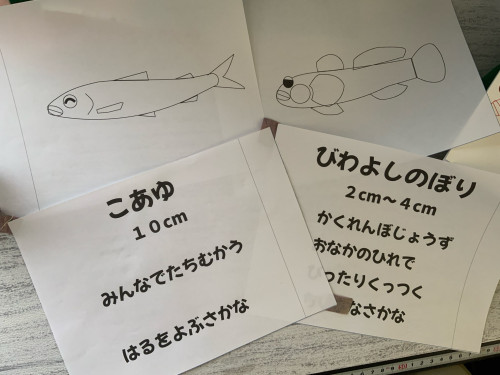 こあゆ
10cm
みんなでたちむかう
はるをよぶさかな
びわよしのぼり
2cm～4cm
かくれんぼじょうず
おなかのひれで
ったりくっつく
なさかな